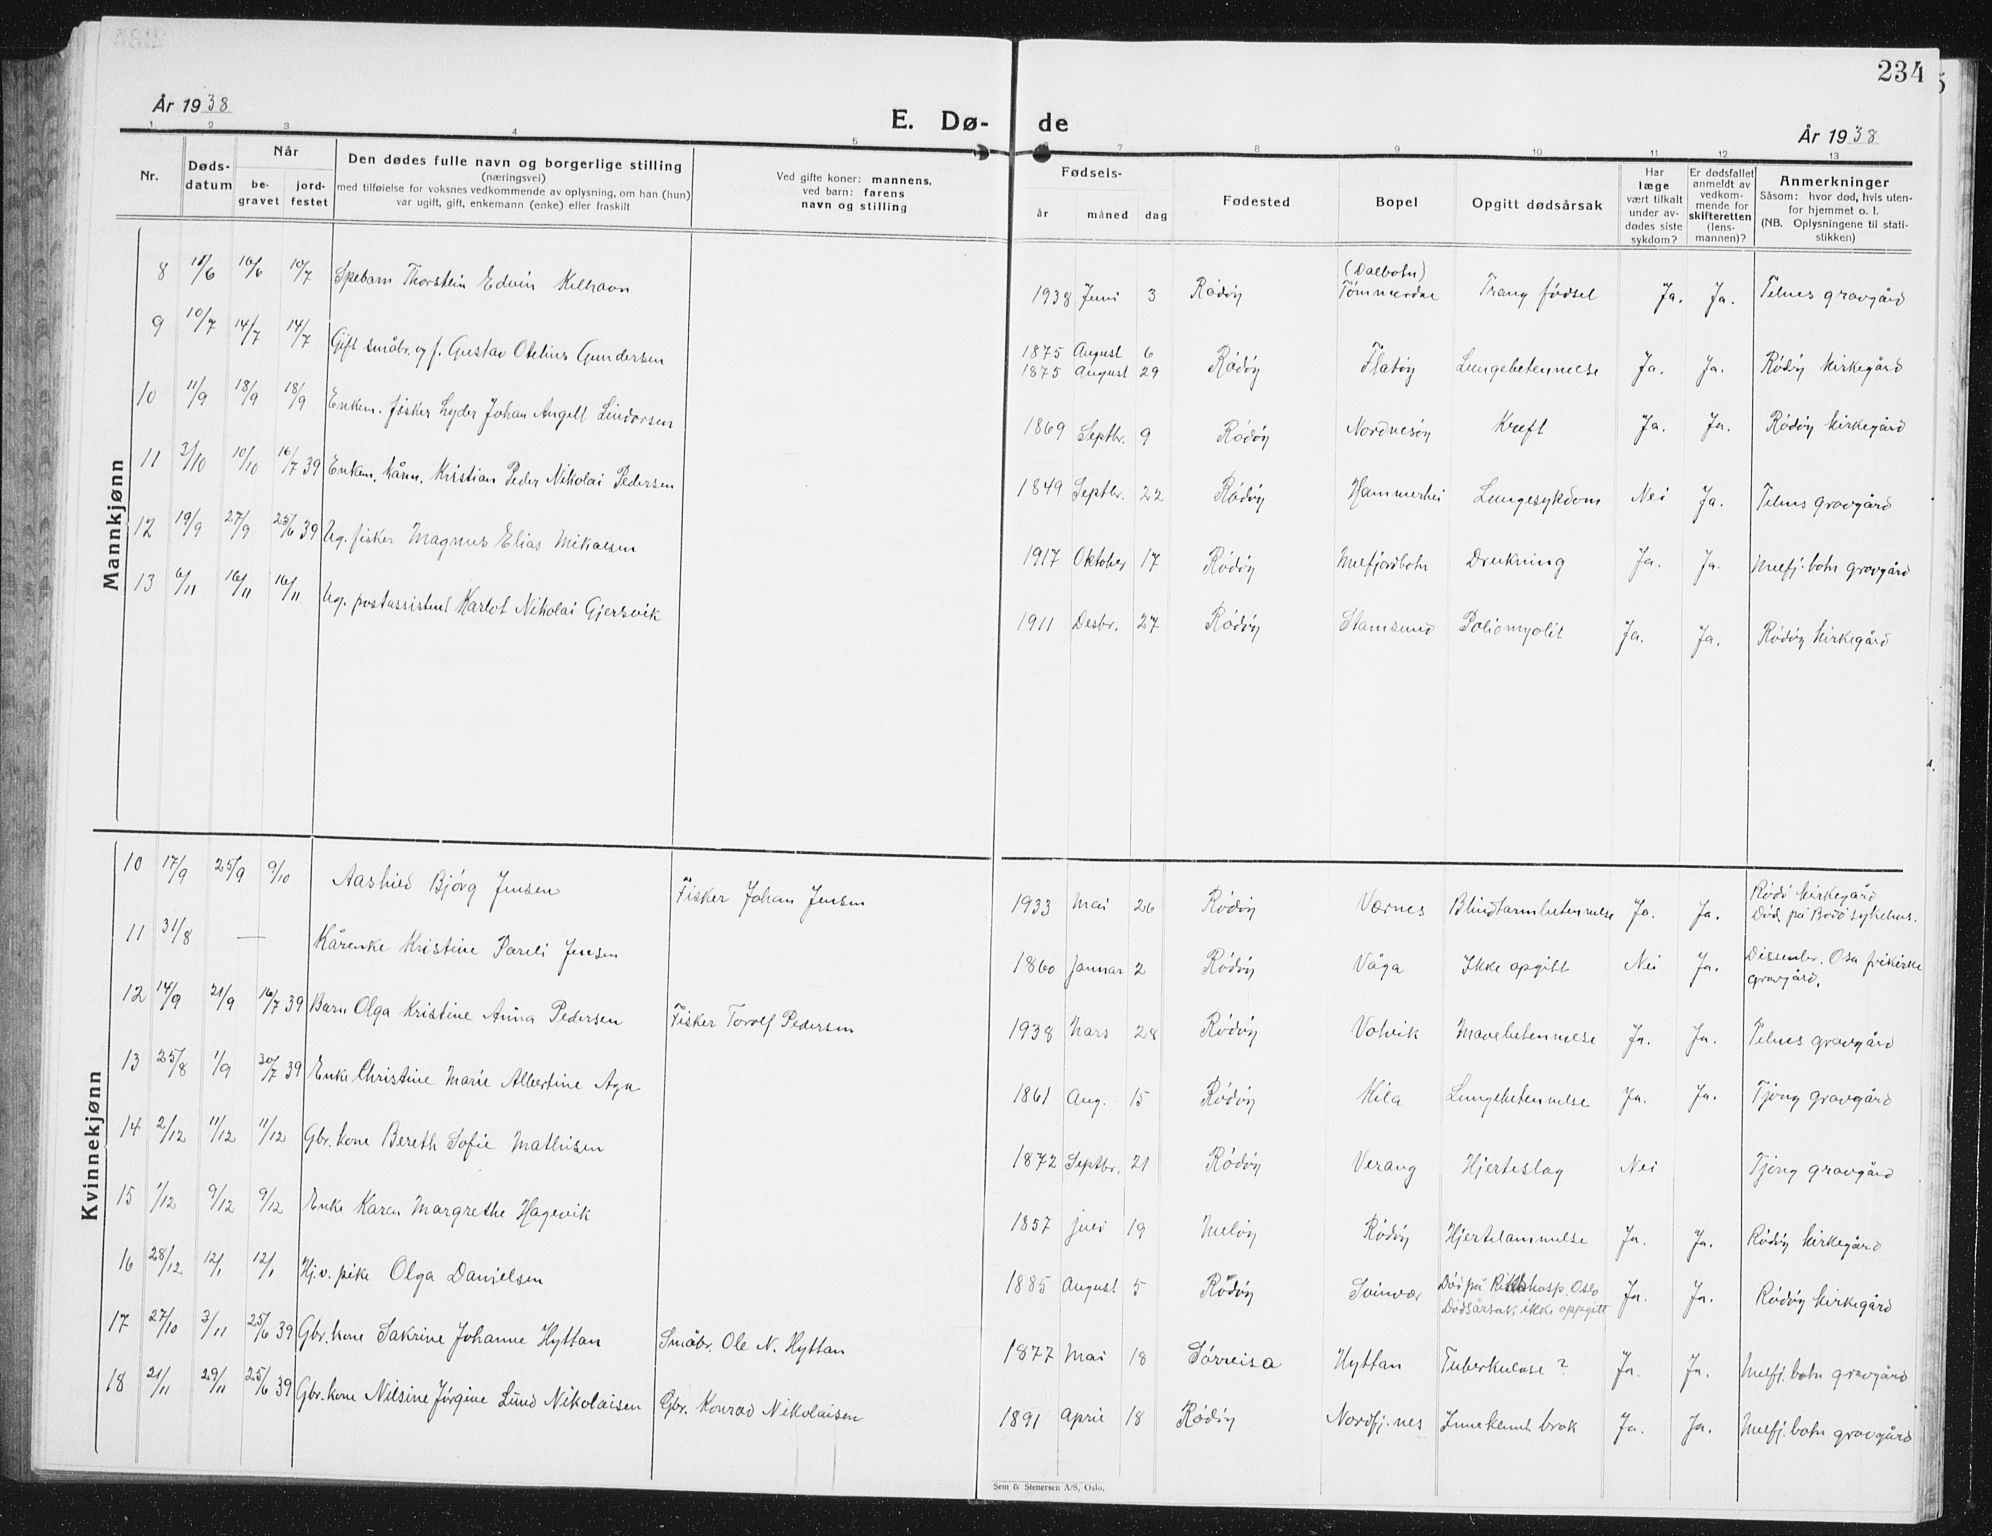 234
År 1938
E. Dø-de
År 1938
1 2 3 4 5 6 7 8 9 10 11 12 13
Nr.
Døds-
datum
Når
be-
gravet
jord-
festet
Den dødes fulle navn og borgerlige stilling
(næringsvei)
med tilføielse for voksnes vedkommende av oplysning, om han (hun)
var ugift, gift, enkemann (enke) eller fraskilt
Ved gifte koner: mannens,
ved barn: farens
navn og stilling
Fødsels-
år måned dag
Fødested
Bopel
Opgitt dødsårsak
Har
læge
vært tilkalt
under av-
dødes siste
sykdom?
Er dødsfallet
anmeldt av
vedkom-
mende for
skifteretten
(lens-
mannen)?
Anmerkninger
Såsom: hvor død, hvis uten-
for hjemmet o. l.
(NB. Oplysningene til stati-
stikken)
Mannkjønn
8 16/6 10/7 Spebarn Thorstein Edvin Kilhavn 1938 Juni 3 Rødøy (Dalbotn) Tømmerdal Trang fødsel Ja. Ja. Telnes gravgård
9 10/7 14/7 14/7 Gift småbr. og f. Gustav Otelius Gundersen 1875 August 6 Rødøy Flatøy Lungebetennelse Ja. Ja. Rødøy kirkegård
1875 August 29
10 11/9 18/9 18/9 Enkem. fisker Lyder Johan Angell Lindorsen 1869 Septbr. 9 Rødøy Nordnesøy Kreft Ja. Ja. Rødøy kirkegård
11 3/10 10/10 16/7 39 Enkem. kårm. Kristian Peder Nikolai Pedersen 1849 Septbr. 22 Rødøy Hammerhei Lungesykdom Nei Ja. Telnes gravgård
12 19/9 27/9 25/6 39 Ug. fisker Magnus Elias Mikalsen 1917 Oktober 17 Rødøy Melfjordbotn Drukning Ja. Ja. Melfj. botn gravgård
13 6/11 16/11 16/11 Ug. postassistent Karlot Nikolai Gjersvik 1911 Desbr. 27 Rødøy Stamsund Poliomyolit Ja. Ja. Rødøy kirkegård
Kvinnekjønn
10 17/9 25/9 9/10 Aashild Bjørg Jensen Fisker Johan Jensen 1933 Mai 26 Rødøy Værnes Blindtarmbetennelse Ja. Ja. Rødø kirkegård
Død på Bodø sykehus.
11 31/8 — Kårenke Kristine Pareli Jensen 1860 Januar 2 Rødøy Våga Ikke opgitt Nei Ja. Dissenter. Osa frikirke
gravgård.
12 14/9 21/9 16/7 39 Barn Olga Kristine Anna Pedersen Fisker Torolf Pedersen 1938 Mars 28 Rødøy Valvik Mavebetennelse Ja. Ja. Telnes gravgård
13 25/8 1/9 30/7 39 Enke Christine Marie Albertine Aga 1861 Aug. 15 Rødøy Kila Lungebetennelse Ja. Ja. Tjong gravgård
14 2/12 11/12 11/12 Gbr. kone Bereth Sofie Mathisen 1872 Septbr. 21 Rødøy Verang Hjerteslag Nei Tjong gravgård
15 1/12 9/12 9/12 Enke Karen Margrethe Hagevik 1857 Juli 19 Meløy Rødøy Hjertelammelse Ja. Ja. Rødøy kirkegård
16 28/12 12/1 12/1 Hj.v. pike Olga Danielsen 1885 August 5 Rødøy Svinvær Død på Rikshosp. Oslo Ja. Ja. Rødøy kirkegård
Dødsårsak ikke oppgitt
17 27/10 3/11 25/6 39 Gbr. kone Sakrine Johanne Hyttan Småbr. Ole N. Hyttan 1877 Mai 18 Sørreisa Hyttan Tuberkulose ? Ja. Ja. Melfj. botn gravgård
18 21/11 29/11 25/6 39 Gbr. kone Nilsine Jørgine Lund Nikolaisen Gbr. Konrad Nikolaisen 1891 April 18 Rødøy Nordfj. nes Inneklemt brok Ja. Ja. Melfj. botn gravgård
Sem & Stenersen A/S, Oslo.